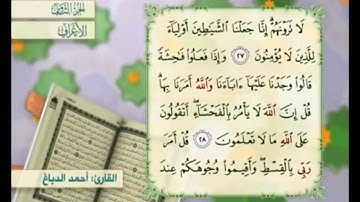 الجزء الثامن
الأعراف
لَا تَرَوْنَهُمْ إِنَّا جَعَلْنَا ٱلشَّيَٰطِينَ أَوْلِيَآءَ
لِلَّذِينَ لَا يُؤْمِنُونَ ٢٧ وَإِذَا فَعَلُوا۟ فَٰحِشَةً
قَالُوا۟ وَجَدْنَا عَلَيْهَآ ءَابَآءَنَا وَٱللَّهُ أَمَرَنَا بِهَا
قُلْ إِنَّ ٱللَّهَ لَا يَأْمُرُ بِٱلْفَحْشَآءِ أَتَقُولُونَ
عَلَى ٱللَّهِ مَا لَا تَعْلَمُونَ ٢٨ قُلْ أَمَرَ
رَبِّى بِٱلْقِسْطِ وَأَقِيمُوا۟ وُجُوهَكُمْ عِندَ
القارئ: أحمد الدباغ